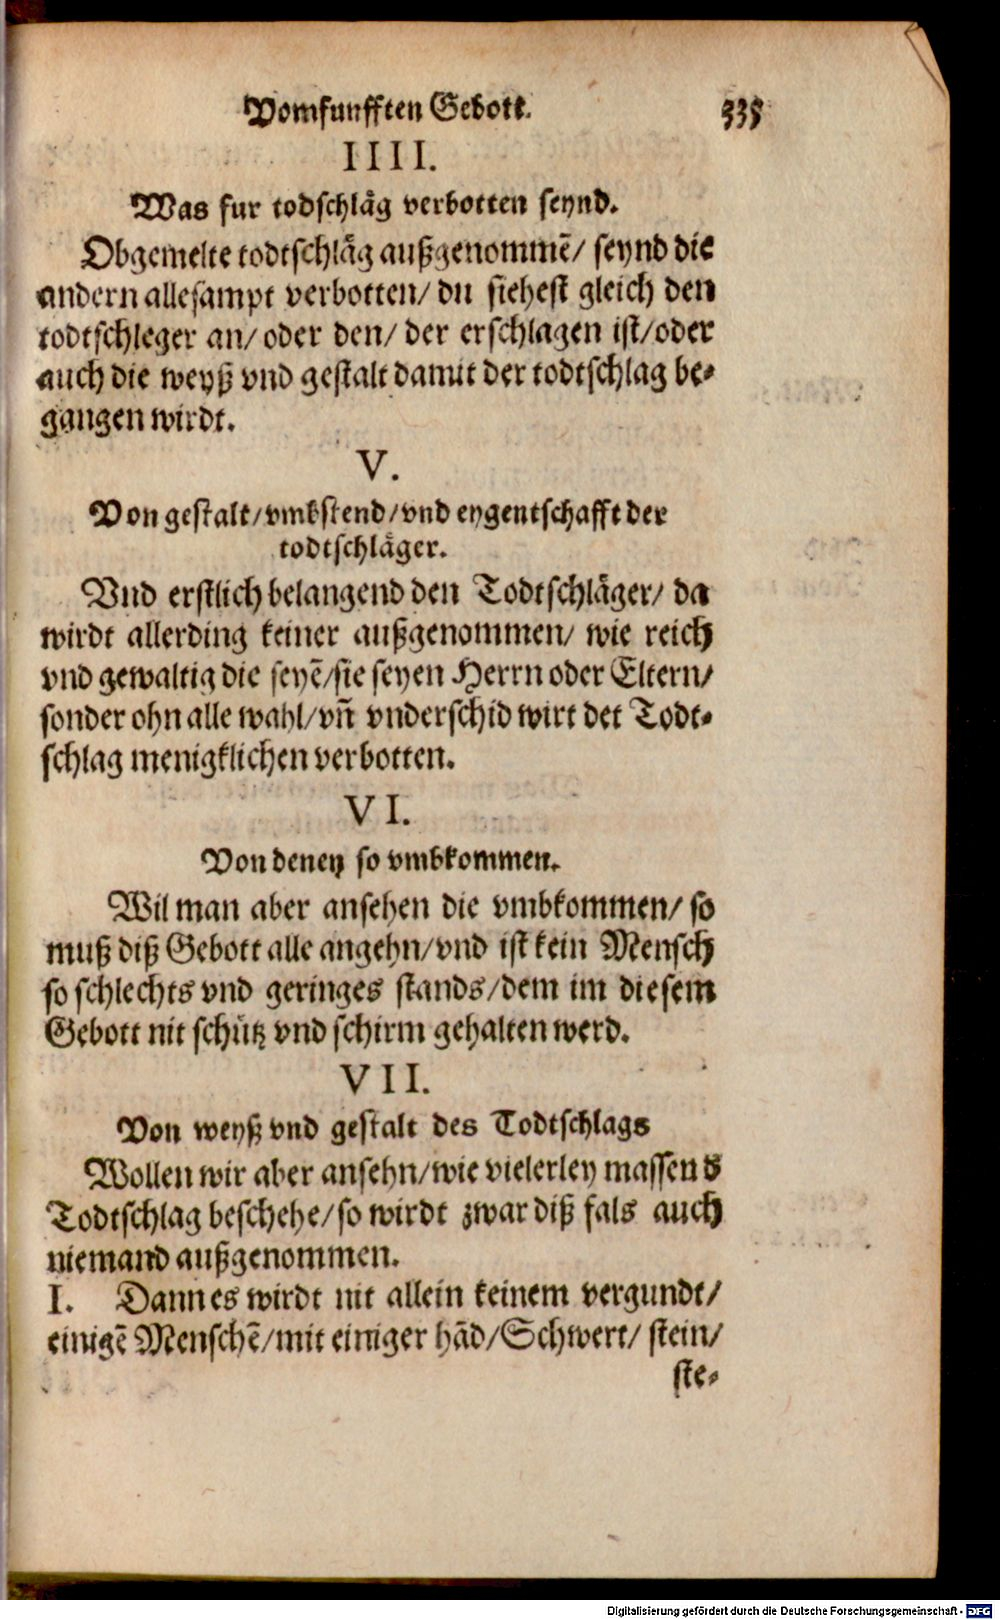 Vomfunfften Gebott. 335
IIII.
Was fur todschläg verbotten seynd.
Obgemelte todtschläg außgenommē/ seynd die
andern allesampt verbotten/ du siehest gleich den
todtschleger an/ oder den/ der erschlagen ist/ oder
auch die weyß vnd gestalt damit der todtschlag be-
gangen wirdt.
V.
Von gestalt/ vmbstend/ vnd eygentschafft der
todtschläger.
Vnd erstlich belangend den Todtschläger/ da
wirdt allerding keiner außgenommen/ wie reich
vnd gewaltig die seyē/ sie seyen Herrn oder Eltern/
sonder ohn alle wahl/ vn̄ vnderschid wirt det Todt-
schlag menigklichen verbotten.
VI.
Von deney so vmbkommen.
Wil man aber ansehen die vmbkommen/ so
muß diß Gebott alle angehn/ vnd ist kein Mensch
so schlechts vnd geringes stands/ dem im diesem
Gebott nit schütz vnd schirm gehalten werd.
VII.
Von weyß vnd gestalt des Todtschlags
Wollen wir aber ansehn/ wie vielerley massen d
Todtschlag beschehe/ so wirdt zwar diß fals auch
niemand außgenommen.
I. Dann es wirdt nit allein keinem vergundt/
einigē Menschē/ mit einiger hād/ Schwert/ stein/
ste-
Digitalisierung gefördert durch die Deutsche Forschungsgemeinschaft - DFG